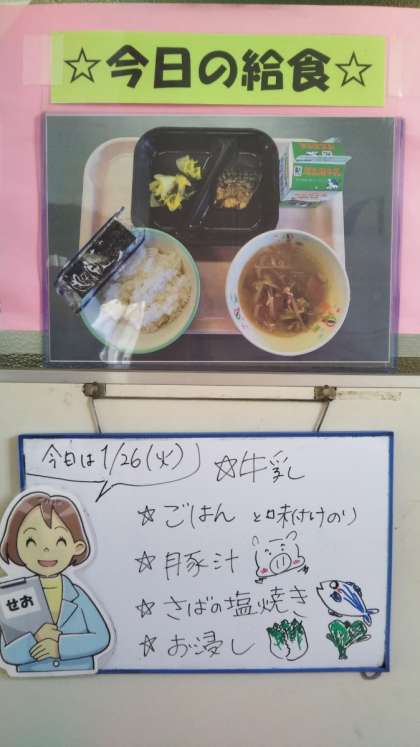 ☆今日の給食☆
今日は1/26(火)
☆牛乳
☆ごはん と味付けのり
☆豚汁
☆さばの塩焼き
☆お浸し
せお